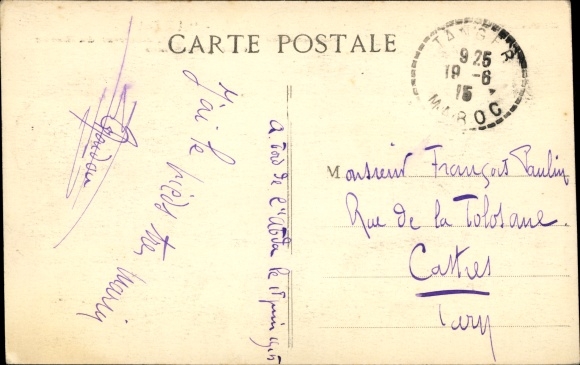 CARTE POSTALE
TANGER
9 25
19 - 6
15
MAROC
J'ai le pied
marin
A bord de l' le 15 juin 1915
Monsieur François Paulin
Rue de la Tolosane
Castres
Tarn